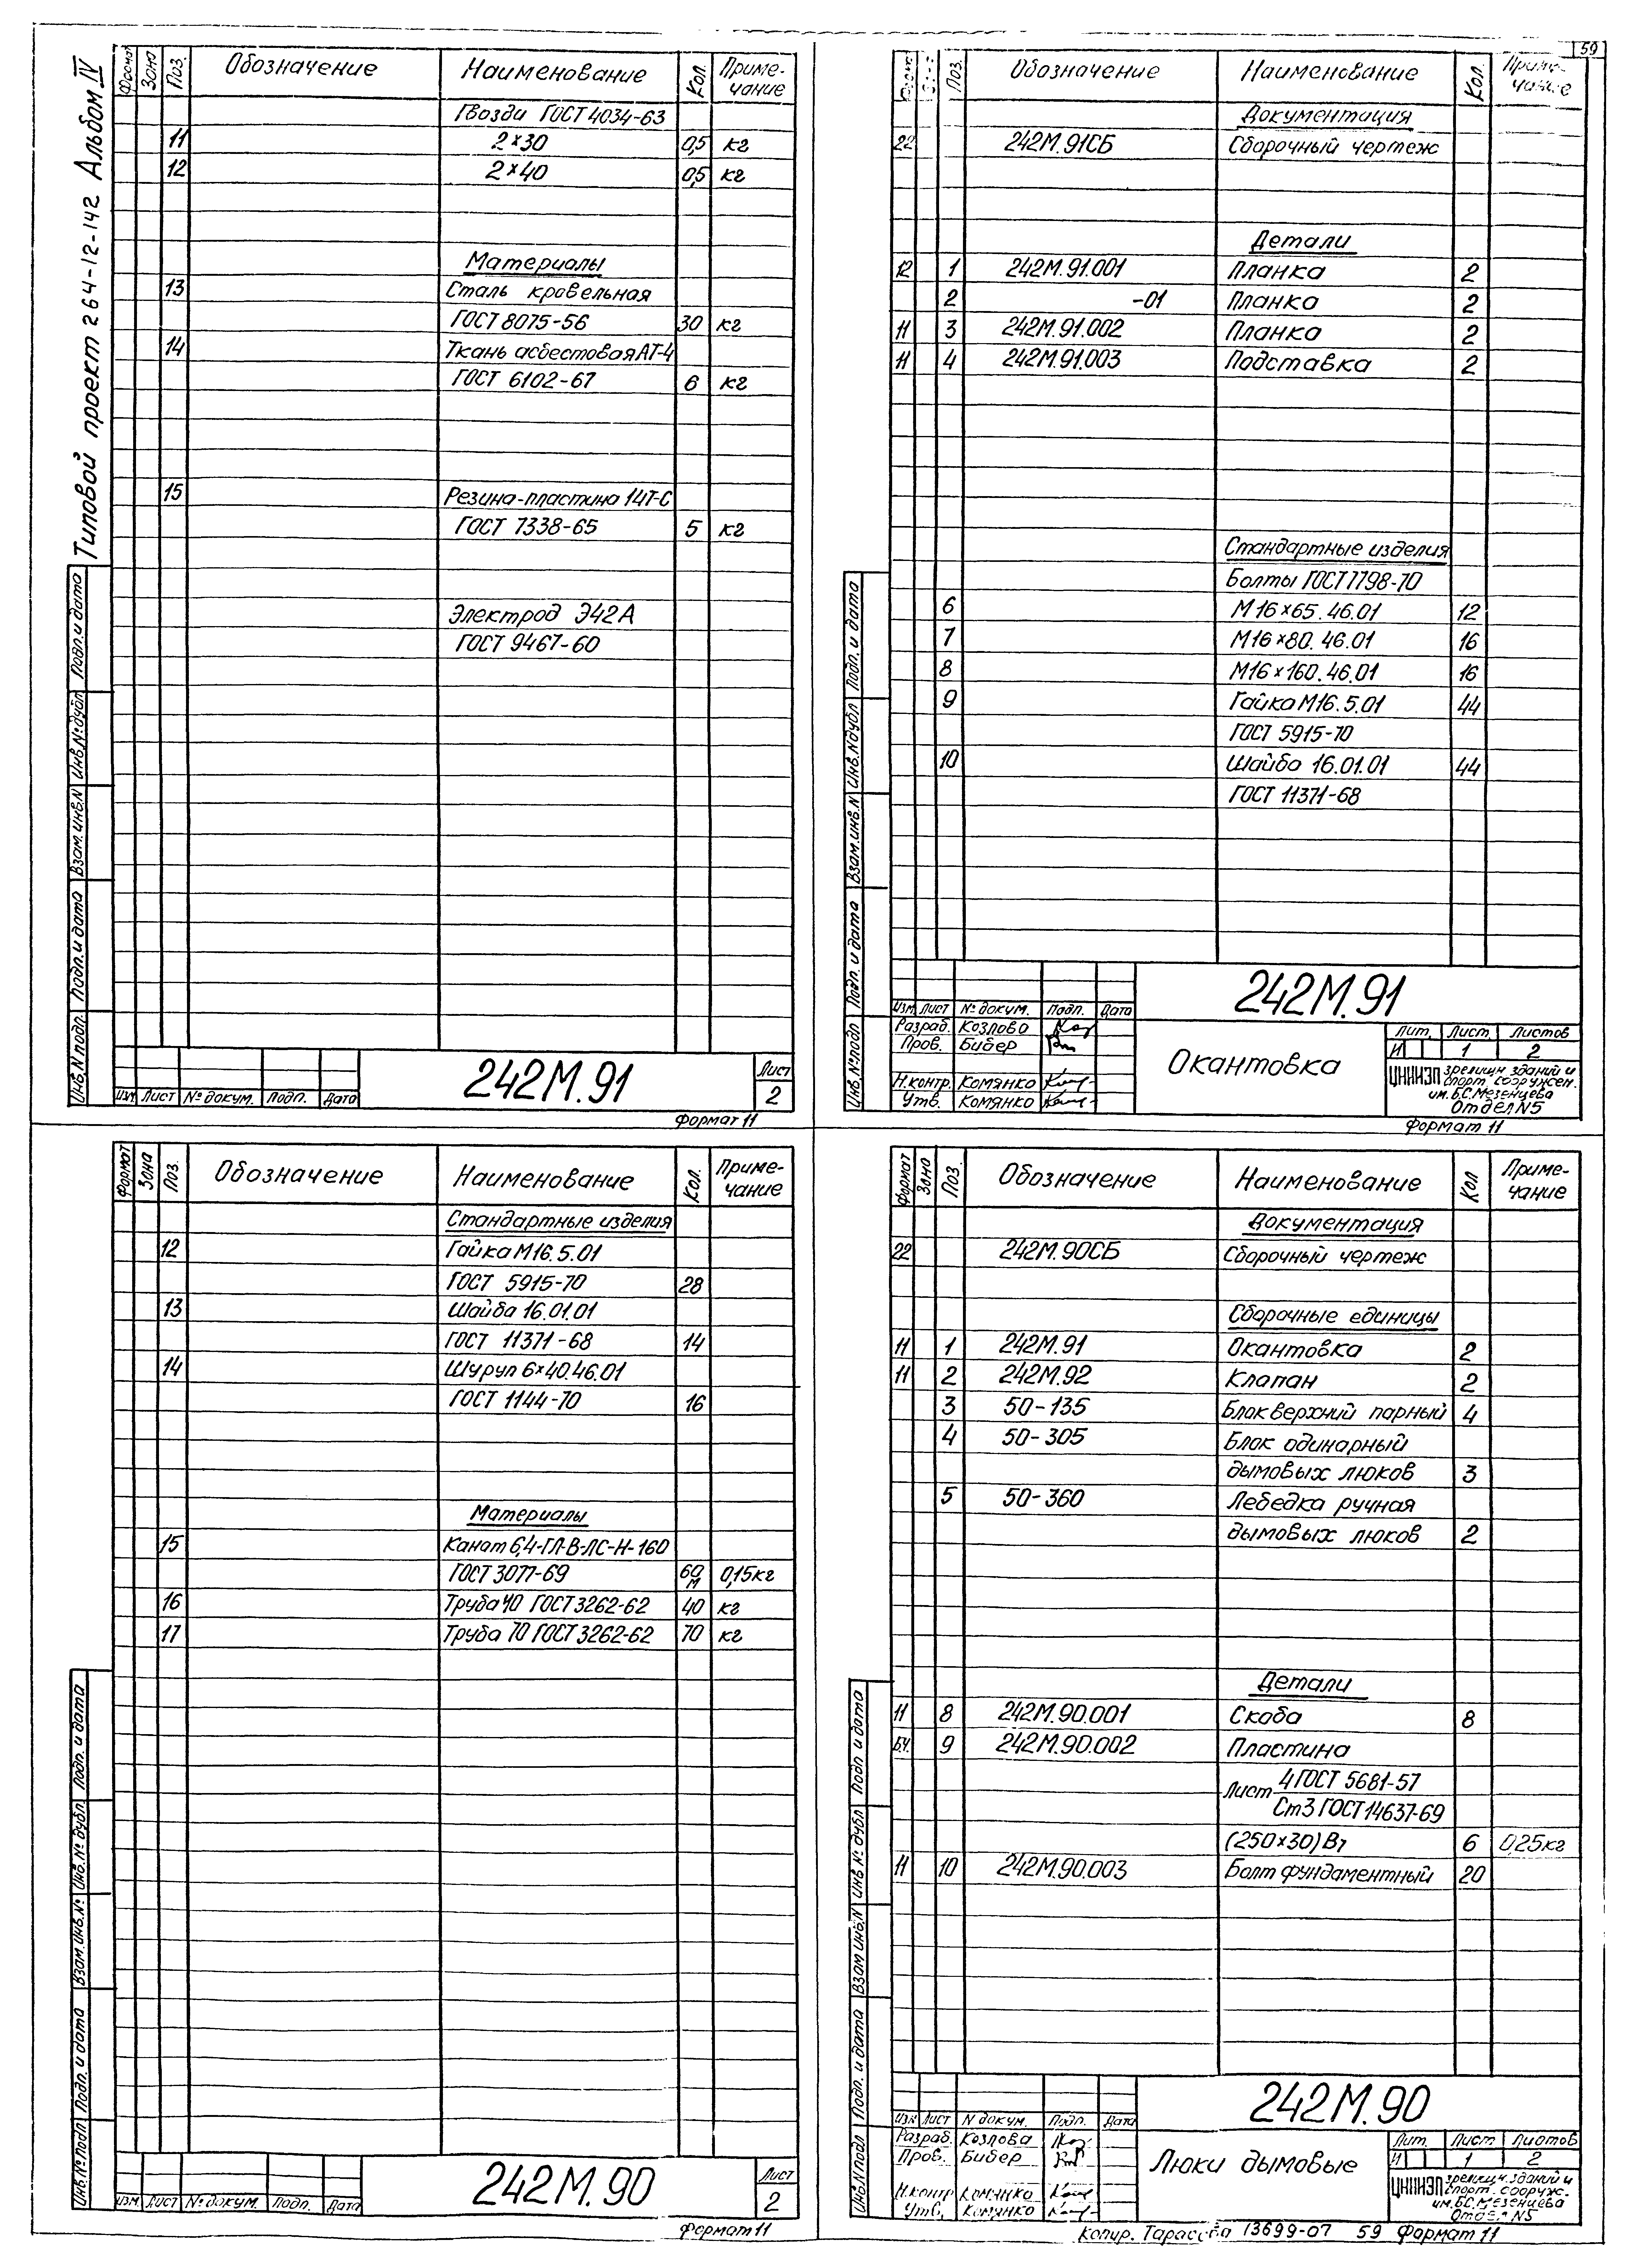 59
Типовой проект 264-12-142 Альбом IV
Формат Зона Поз. Обозначение Наименование Кол. Приме-
чание
Гвозди ГОСТ 4034-63
11 2×30 0,5 кг
12 2×40 0,5 кг
Материалы
13 Сталь кровельная
ГОСТ 8075-56 30 кг
14 Ткань асбестовая АТ-4
ГОСТ 6102-67 6 кг
15 Резина-пластина 14Т-С
ГОСТ 7338-65 5 кг
Электрод Э42А
ГОСТ 9467-60
Инв.N подл. Подп. и дата Взам.инв.N Инв.№дубл Подп. и дата
Изм Лист № докум. Подп. Дата
242М.91
Лист
2
Формат 11
Поз. Обозначение Наименование Кол. Приме-
чание
Документация
22 242М.91СБ Сборочный чертеж
Детали
12 1 242М.91.001 Планка 2
2 -01 Планка 2
11 3 242М.91.002 Планка 2
11 4 242М.91.003 Подставка 2
Стандартные изделия
Болты ГОСТ 7798-70
6 М16×65.46.01 12
7 М16×80.46.01 16
8 М16×160.46.01 16
9 Гайка М16.5.01 44
ГОСТ 5915-70
10 Шайба 16.01.01 44
ГОСТ 11371-68
Инв.№подл Подп. и дата Взам.инв.N Инв.Nдубл Подп. и дата
242М.91
Изм Лист № докум. Подп. Дата
Разраб. Козлова
Пров. Бибер
Н.контр. Комянко
Утв. Комянко
Окантовка
Лит. Лист. Листов
И 1 2
ЦНИИЭП зрелищн зданий и
спорт сооружен.
им. Б.С. Мезенцева
Отдел N5
Формат 11
Формат Зона Поз. Обозначение Наименование Кол. Приме-
чание
Стандартные изделия
12 Гайка М16.5.01
ГОСТ 5915-70 28
13 Шайба 16.01.01
ГОСТ 11371-68 14
14 Шуруп 6×40.46.01
ГОСТ 1144-70 16
Материалы
15 Канат 6,4-ГЛ-В-ЛС-Н-160
ГОСТ 3077-69 60 м 0,15кг
16 Труба 40 ГОСТ 3262-62 40 кг
17 Труба 70 ГОСТ 3262-62 70 кг
Инв.№подл Подп. и дата Взам.инв.№ Инв.№ дубл. Подп. и дата
Изм. Лист № докум. Подп. Дата
242М.90
Лист
2
Формат 11
Формат Зона Поз. Обозначение Наименование Кол Приме-
чание
Документация
22 242М.90СБ Сборочный чертеж
Сборочные единицы
11 1 242М.91 Окантовка 2
11 2 242М.92 Клапан 2
3 50-135 Блок верхний парный 4
4 50-305 Блок одинарный
дымовых люков 3
5 50-360 Лебедка ручная
дымовых люков 2
Детали
11 8 242М.90.001 Скоба 8
БЧ. 9 242М.90.002 Пластина
Лист 4 ГОСТ 5681-57
Ст3 ГОСТ 14637-69
(250×30)В7 6 0,25кг
11 10 242М.90.003 Болт фундаментный 20
Инв.N подл Подп. и дата Взам инв.N Инв № дубл Подп и дата
242М.90
Изм Лист N докум. Подп. Дата
Разраб. Козлова
Пров. Бибер
Н.контр Комянко
Утв. Комянко
Люки дымовые
Лит. Лист Листов
И 1 2
ЦНИИЭП зрелищн. зданий и
спорт. сооруж.
им. Б.С. Мезенцева
Отдел N5
Копир. Тарасова 13699-07 59 Формат 11